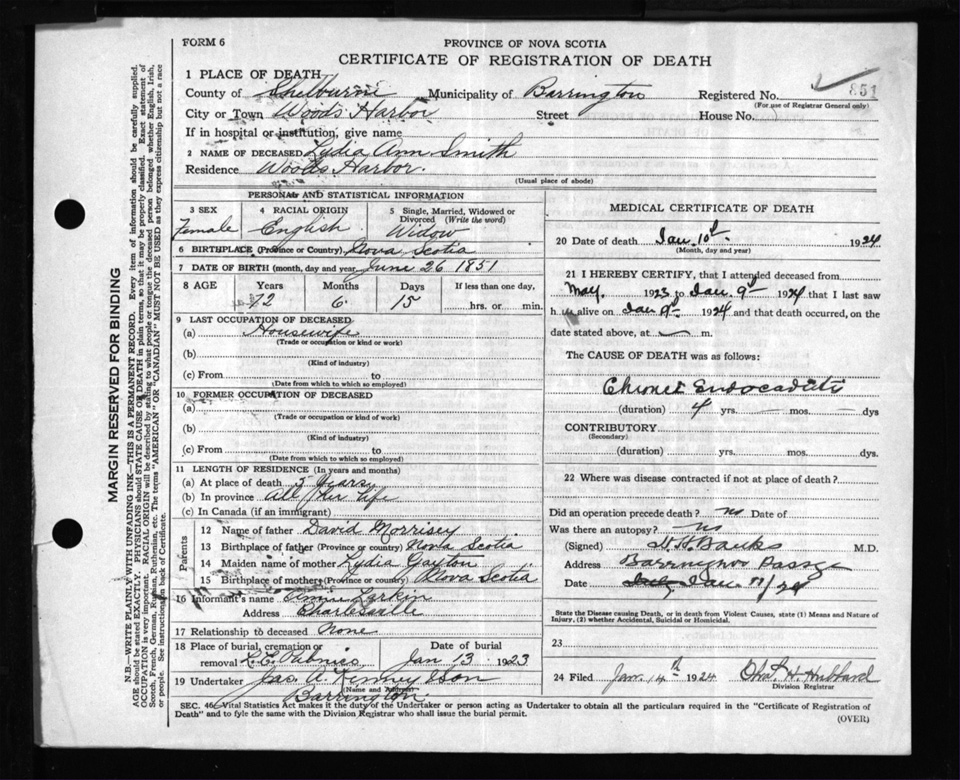 FORM 6
PROVINCE OF NOVA SCOTIA
CERTIFICATE OF REGISTRATION OF DEATH
1 PLACE OF DEATH
County of Shelburne Municipality of Barrington Registered No. 851
(For use of Registrar General only)
City or Town Woods Harbor Street House No.
If in hospital or institution, give name
2 NAME OF DECEASED Lydia Ann Smith
Residence Woods Harbor.
(Usual place of abode)
PERSONAL AND STATISTICAL INFORMATION
3 SEX Female
4 RACIAL ORIGIN English
5 Single, Married, Widowed or Divorced (Write the word) Widow
6 BIRTHPLACE (Province or Country) Nova Scotia
7 DATE OF BIRTH (month, day and year) June 26 1851
8 AGE Years Months Days If less than one day,
72 6 15 hrs. or min.
9 LAST OCCUPATION OF DECEASED
(a) Housewife
(Trade or occupation or kind or work)
(b)
(Kind of industry)
(c) From to
(Date from which to which so employed)
10 FORMER OCCUPATION OF DECEASED
(a)
(Trade or occupation or kind of work)
(b)
(Kind of industry)
(c) From to
(Date from which to which so employed)
11 LENGTH OF RESIDENCE (In years and months)
(a) At place of death 5 Years
(b) In province All her life
(c) In Canada (if an immigrant)
Parents
12 Name of father David Morrisey
13 Birthplace of father (Province or country) Nova Scotia
14 Maiden name of mother Lydia
15 Birthplace of mother (Province or country) Nova Scotia
16 Informant's name Larkin
Address Charlesville
17 Relationship to deceased None
18 Place of burial, cremation or removal Date of burial
L.E. Pubnico Jan 13 1923
19 Undertaker Jas. A. Kenney & Son
(Name and Address)
Barrington
SEC. 46. Vital Statistics Act makes it the duty of the Undertaker or person acting as Undertaker to obtain all the particulars required in the "Certificate of Registration of
Death" and to fyle the same with the Division Registrar who shall issue the burial permit.
(OVER)
MEDICAL CERTIFICATE OF DEATH
20 Date of death Jan. 10th 1924
(Month, day and year)
21 I HEREBY CERTIFY, that I attended deceased from
May 1923 to Jan. 9th 1924 that I last saw
h alive on Jan 9th 1924 and that death occurred, on the
date stated above, at — m.
The CAUSE OF DEATH was as follows:
Chronic Endocarditis
(duration) 4 yrs. — mos. — dys
CONTRIBUTORY
(Secondary)
(duration) yrs. mos. dys.
22 Where was disease contracted if not at place of death?
Did an operation precede death? no Date of
Was there an autopsy? no
(Signed) Banks M.D.
Address Barrington Passage
Date Jan 11/24
State the Disease causing Death, or in death from Violent Causes, state (1) Means and Nature of
Injury, (2) whether Accidental, Suicidal or Homicidal.
23
24 Filed Jan. 14th 1924 H. Hubbard
Division Registrar
MARGIN RESERVED FOR BINDING
N.B.—WRITE PLAINLY WITH UNFADING INK—THIS IS A PERMANENT RECORD. Every item of information should be carefully supplied.
AGE should be stated EXACTLY. PHYSICIANS should STATE CAUSE OF DEATH in plain terms, so that it may be properly classified. Exact statement of
OCCUPATION is very important. RACIAL ORIGIN will be described by stating to what people or tongue the deceased person belonged whether English, Irish,
Scotch, French, German, Russian, Ruthenian, etc. The terms "AMERICAN" or "CANADIAN" MUST NOT BE USED as they express citizenship but not a race
or people. See instructions on back of Certificate.